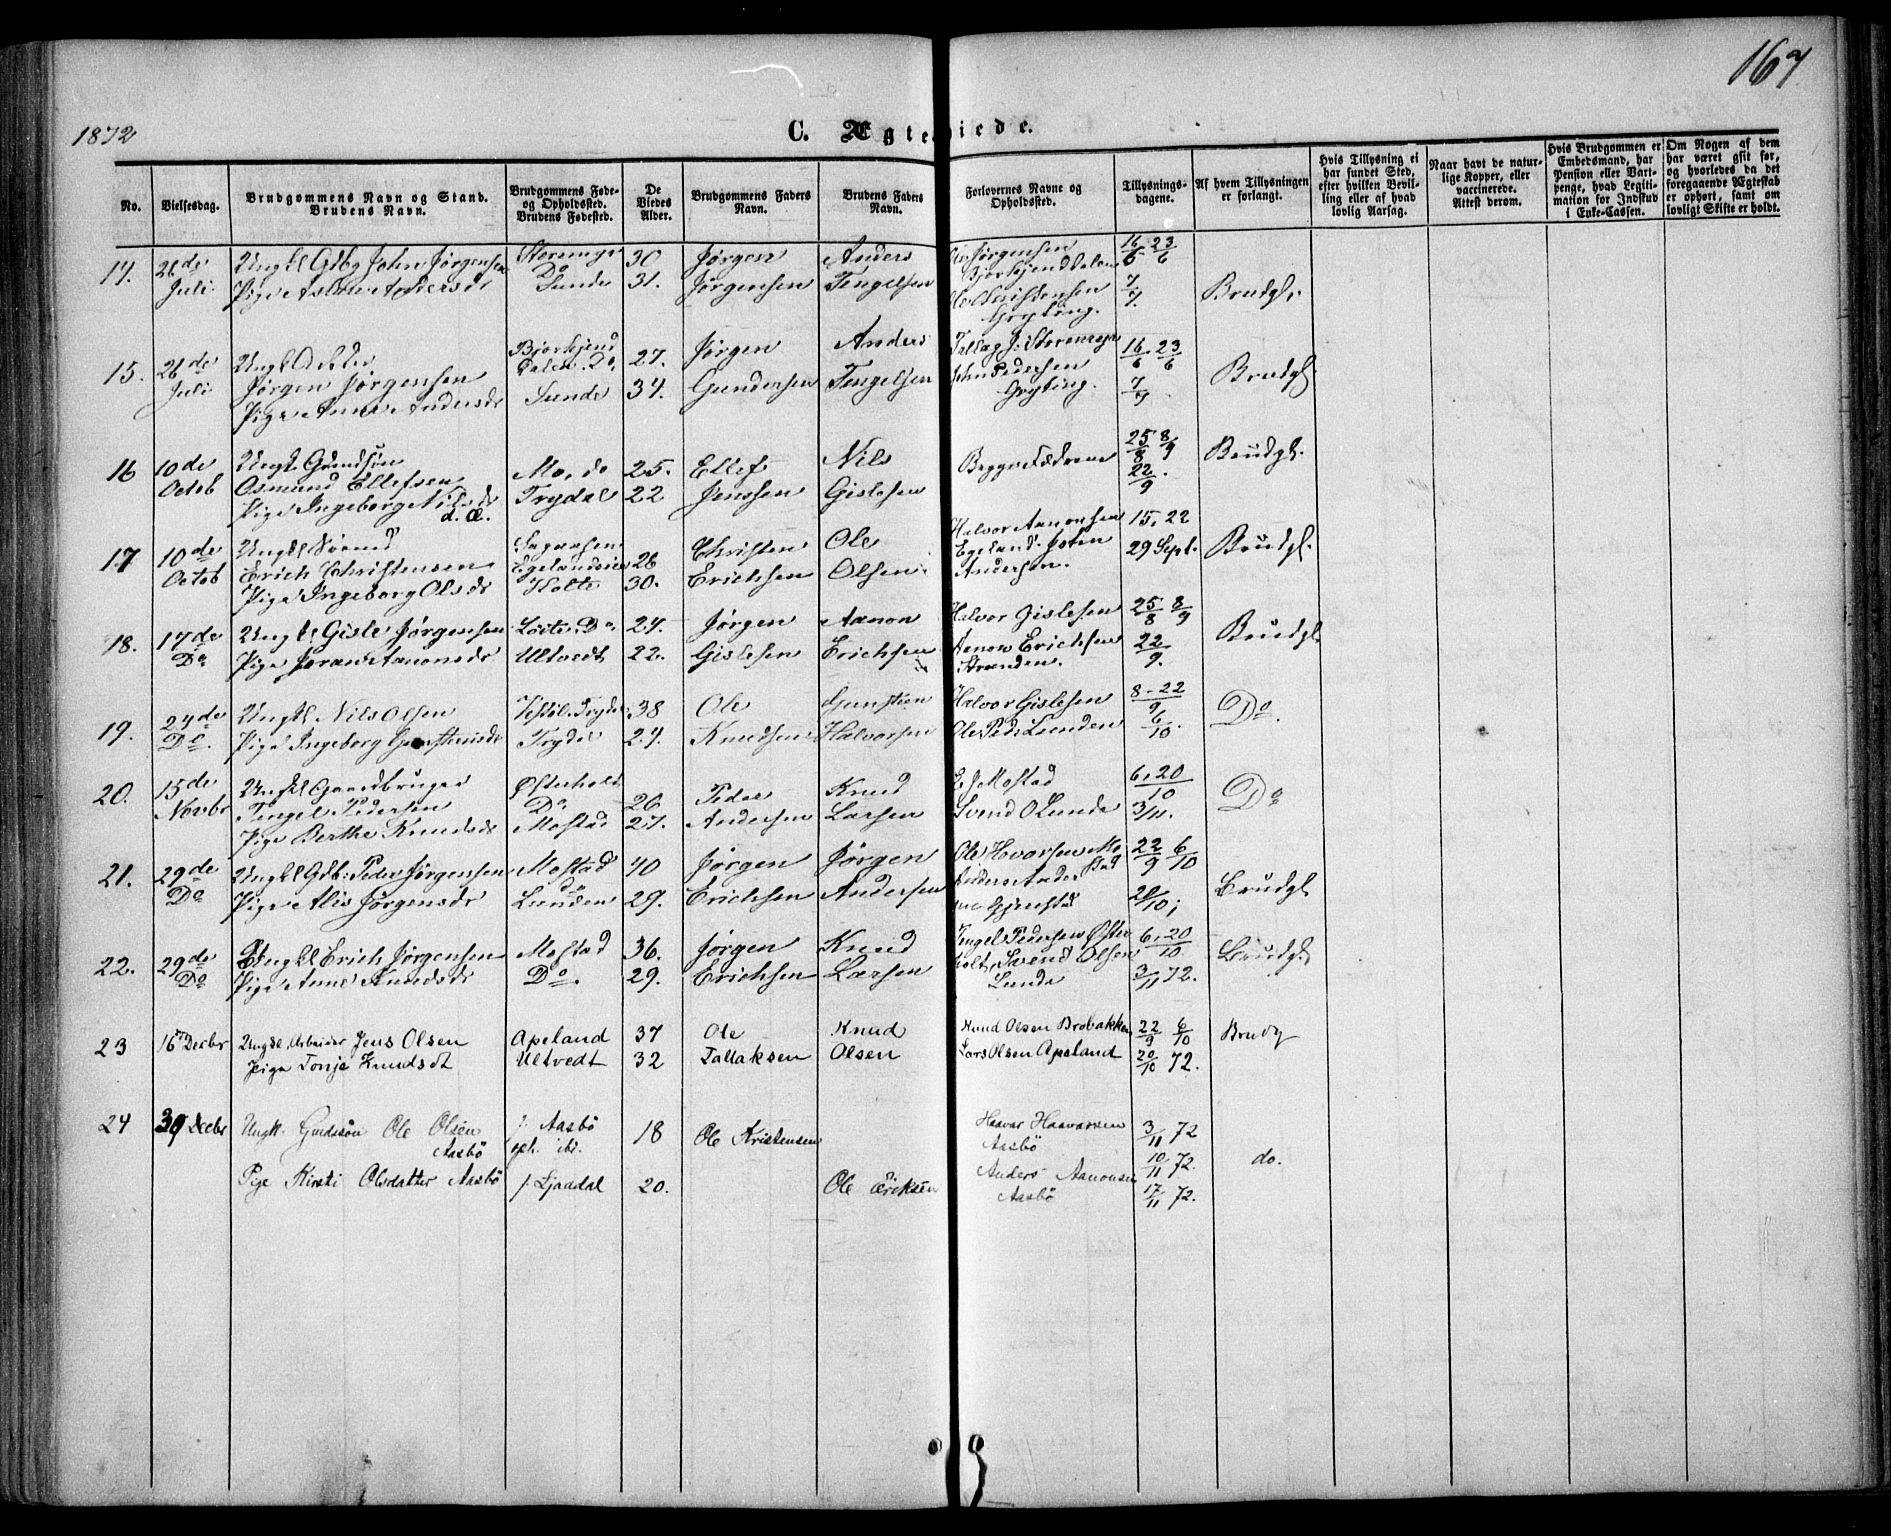 167
1872
C. Ægteviede.
No.
Vielsesdag.
Brudgommens Navn og Stand.
Brudens Navn.
Brudgommens Føde-
og Opholdssted.
Brudens Fødested.
De
Viedes
Alder.
Brudgommens Faders
Navn.
Brudens Faders
Navn.
Forlovernes Navne og
Opholdssted.
Tillysnings-
dagene.
Af hvem Tillysningen
er forlangt.
Hvis Tillysning ei
har fundet Sted,
efter hvilken Bevil-
ling eller af hvad
lovlig Aarsag.
Naar havt de natur-
lige Kopper, eller
vaccinerede.
Attest derom.
Hvis Brudgommen er
Embedsmand, har
Pension eller Vart-
penge, hvad Legiti-
mation for Indskud
i Enke-Cassen.
Om Nogen af dem
har været gift før,
og hvorledes da det
foregaaende Ægteskab
er ophørt, samt om
lovligt Skifte er holdt.
26de Juli
Ungkl Gdbg John Jørgensen
Do
30
Jørgen
Anders
Jørgensen
16/6 23/6
Sunde
31.
Jørgensen
Tengelsen
Ole Christensen
Gryting.
7/7.
Brudgl.
15.
26de Juli
Ungkl Arbeider
Jørgen Jørgensen
Pige Anne Andersdr
Bjorkjend
Dalen Do.
Sunde
27.
34.
Jørgen
Gundersen
Anders
Tengelsen
John Pedersen
Gryting.
16/6 23/6
7/7
Brudgl.
16
10de Octob
Ungk Grundsøn
Osmund Ellefsen
Pige Ingeborg Nilsdr
d. Æ.
Mo, do
Trydal
25.
22
Ellef
Jenssen
Nils
Gislesen
Begges Fædrene
25/8 8/9
22/9.
Brudgl.
17
10de Octob
Ungkl
Erich Christensen
Pige Ingeborg Olsdr
Holte
26
30.
Christen
Erichsen
Ole
Olsen
Halvor Aanonsen
Egeland. John
Andersen.
15, 22
29 Sept.
Brudgl.
18.
17de Do
Ungkl Gisle Jørgensen
Pige Joran Aanonsdr
Løite, Do
Ultvedt
24.
22.
Jørgen
Gislesen
Aanon
Erichsen
Halvor Gislesen
Aanon Erichsen
Stranden.
25/8 8/9
22/9.
Brudgl.
19.
24de Do.
Ungkl Nils Olsen
Pige Ingeborg Gunsteinsdr
Trydal
38
24.
Ole
Knudsen
Gunstien
Halvorsen
Halvor Gislesen
Ole Peds Lunden
8-22/9
6/10.
Do.
20.
15de Novbr
Ungkl Gaardbruger
Tengel Pedersen
Pige Berthe Knudsdr
Østerholt
Do
Mostad
26
27.
Peder
Andersen
Knud
Larsen
Mostad
Svend O Lunde
6,20/10
3/11.
Do
21.
29de Do
Ungkl Gdb: Peder Jørgensen
Pige Alis Jørgensdr
Mostad
do
Lunden
40
29.
Jørgen
Erichsen
Jørgen
Andersen
Ole Hovorsen Mo
stad
Gjerrestad
22/9 6/10
20/10;
Brudgl
22.
29de Do
Ungkl Erich Jørgensen
Pige Anne Knudsdr
Mostad
Do.
36.
29.
Jørgen
Erichsen
Knud
Larsen
Tengel Pedersen Øster
holt, Svend Olsen
Lunde
6,20/10
3/11 72.
Brudgl
23
16 Decbr
Ungkl. Arbeider Jens Olsen
Pige Tonje Knudsdt
Apeland
Ultvedt
37
32
Ole
Tallaksen
Knud
Olsen
Knud Olsen Brobakken
Lars Olsen Apeland
22/9 6/10
20/10 72.
Brudg
24
30 Decbr
Ungk. Gaardssøn Ole Olsen
Aasbø
Pige Kirsti Olsdatter Aasbø
f. Aasbø
oph. ibi.
f. Ljaadal
18
20.
Ole Kristensen
Ole Eriksen
Haavor Haavorsen
Aasbø
Anders Aanonsen
Aasbø
3/11 72
10/11 72.
17/11 72.
do.